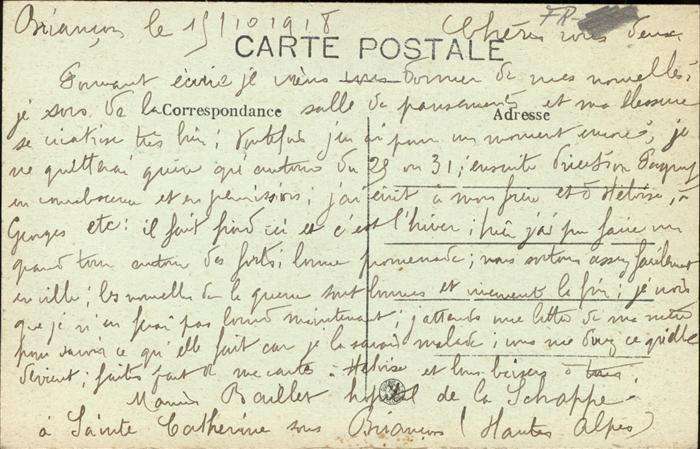 Briançon le 15/10 1918 Chères vous deux
FR-
CARTE POSTALE
Pouvant écrire je viens vous donner de mes nouvelles
Correspondance
Adresse
je sors de la salle de pansements et ma blessure
se cicatrise très bien ; Toutefois j'en ai pour un moment encore, je
ne quitterai guère qu'autour du 29 ou 31 ; ensuite direction
en convalescence et en permission ; j'ai écrit à mon frère et à Héloïse, à
Georges etc : il fait froid ici et c'est l'hiver ; j'ai pu faire un
grand tour autour des forts ; bonne promenade ; nous sortons assez facilement
en ville ; les nouvelles de la guerre sont bonnes et la fin ; je crois
que je n'en ferai pas lourd maintenant ; j'attends une lettre de ma mère
pour savoir ce qu'elle fait car je la savais malade ; vous me direz ce qu'elle
devient ; faites part de ma carte à Héloïse et bons baisers à tous.
Marius Baillet hôpital de la Schappe
à Sainte Catherine sous Briançon (Hautes Alpes)